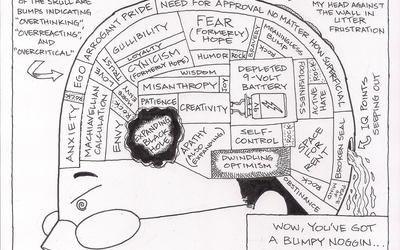 OF THE SKULL ARE
BUMPS INDICATING
"OVERTHINKING",
"OVERREACTING", AND
"OVERCRITICAL"
MY HEAD AGAINST
THE WALL IN
UTTER
FRUSTRATION
ANXIETY
EGO
ARROGANT PRIDE
NEED FOR APPROVAL NO MATTER HOW SUPERFICIAL
ROCK
MACHIAVELLIAN
CALCULATION
LOVE
TRUST
ENVY
GULLIBILITY
LOYALTY
CYNICISM
(FORMERLY HOPE)
FEAR
(FORMERLY)
HOPE
HUMOR
ROCK
WISDOM
MISANTHROPY
JOY
PATIENCE
CREATIVITY
EXPANDING
BLACK
HOLE
APATHY
(ALSO
EXPANDING)
DEPLETED
9-VOLT
BATTERY
9V
MEANINGLESS
ROCK
ROUGHNESS
ACTIVE
HATE
ROCK
SELF-
CONTROL
ROCK
SPACE
FOR
RENT
DWINDLING
OPTIMISM
ROCK
OBSTINANCE
BROKEN SEAL
IQ POINTS
SEEPING OUT
WOW, YOU'VE GOT
A BUMPY NOGGIN...